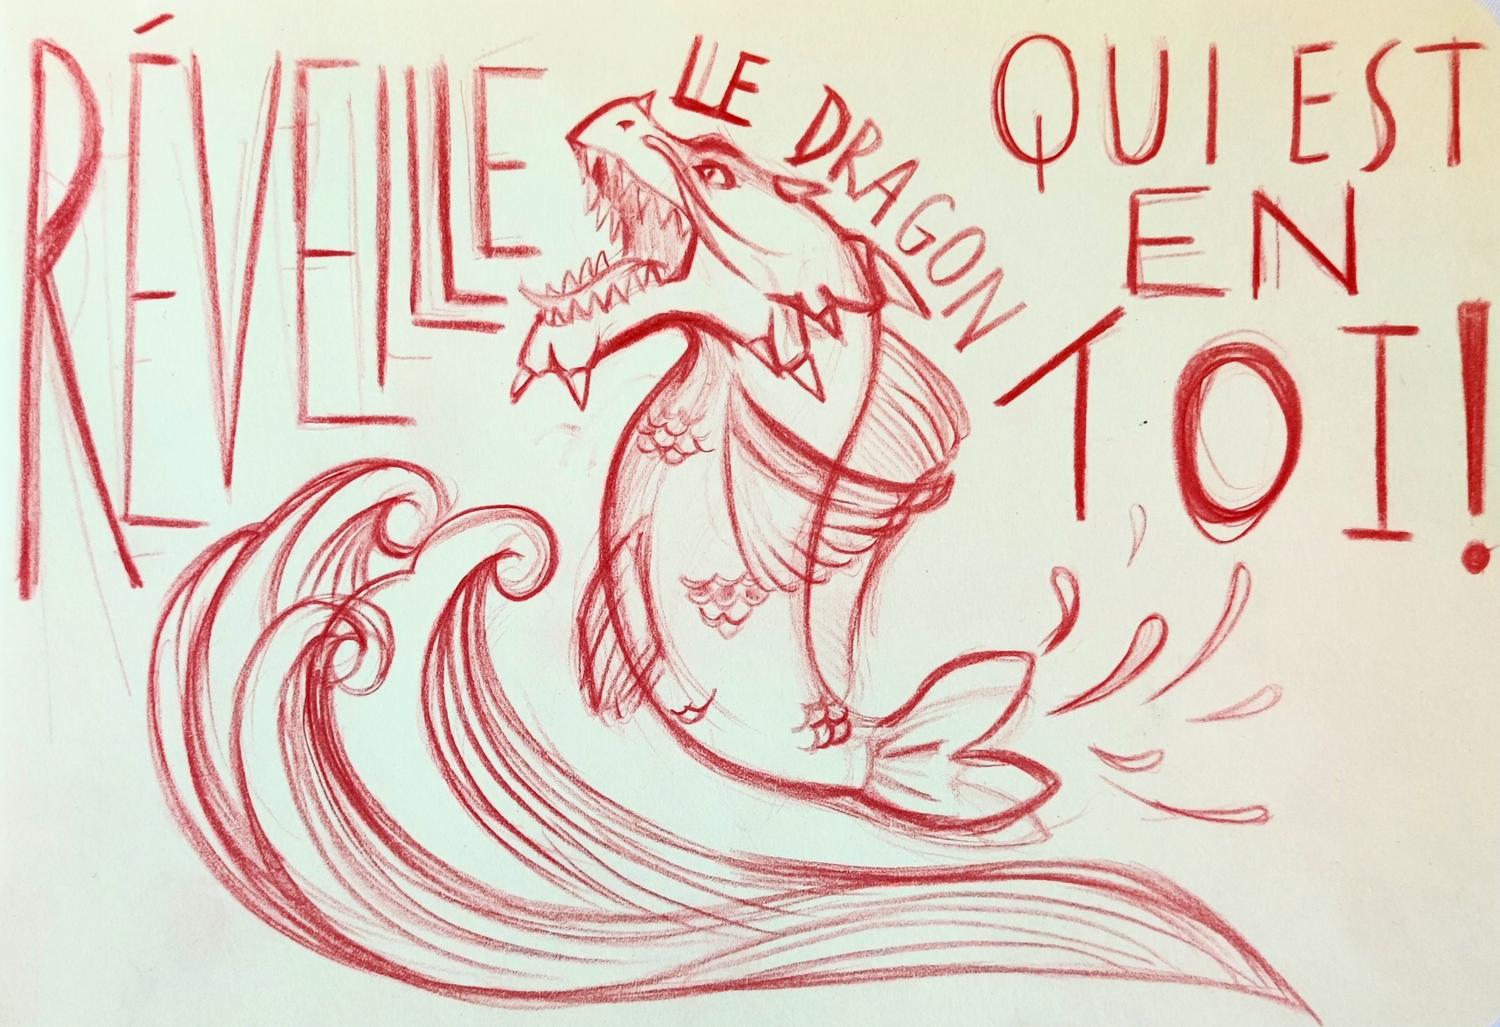 RÉVEILLE
LE DRAGON
QUI EST
EN
TOI !